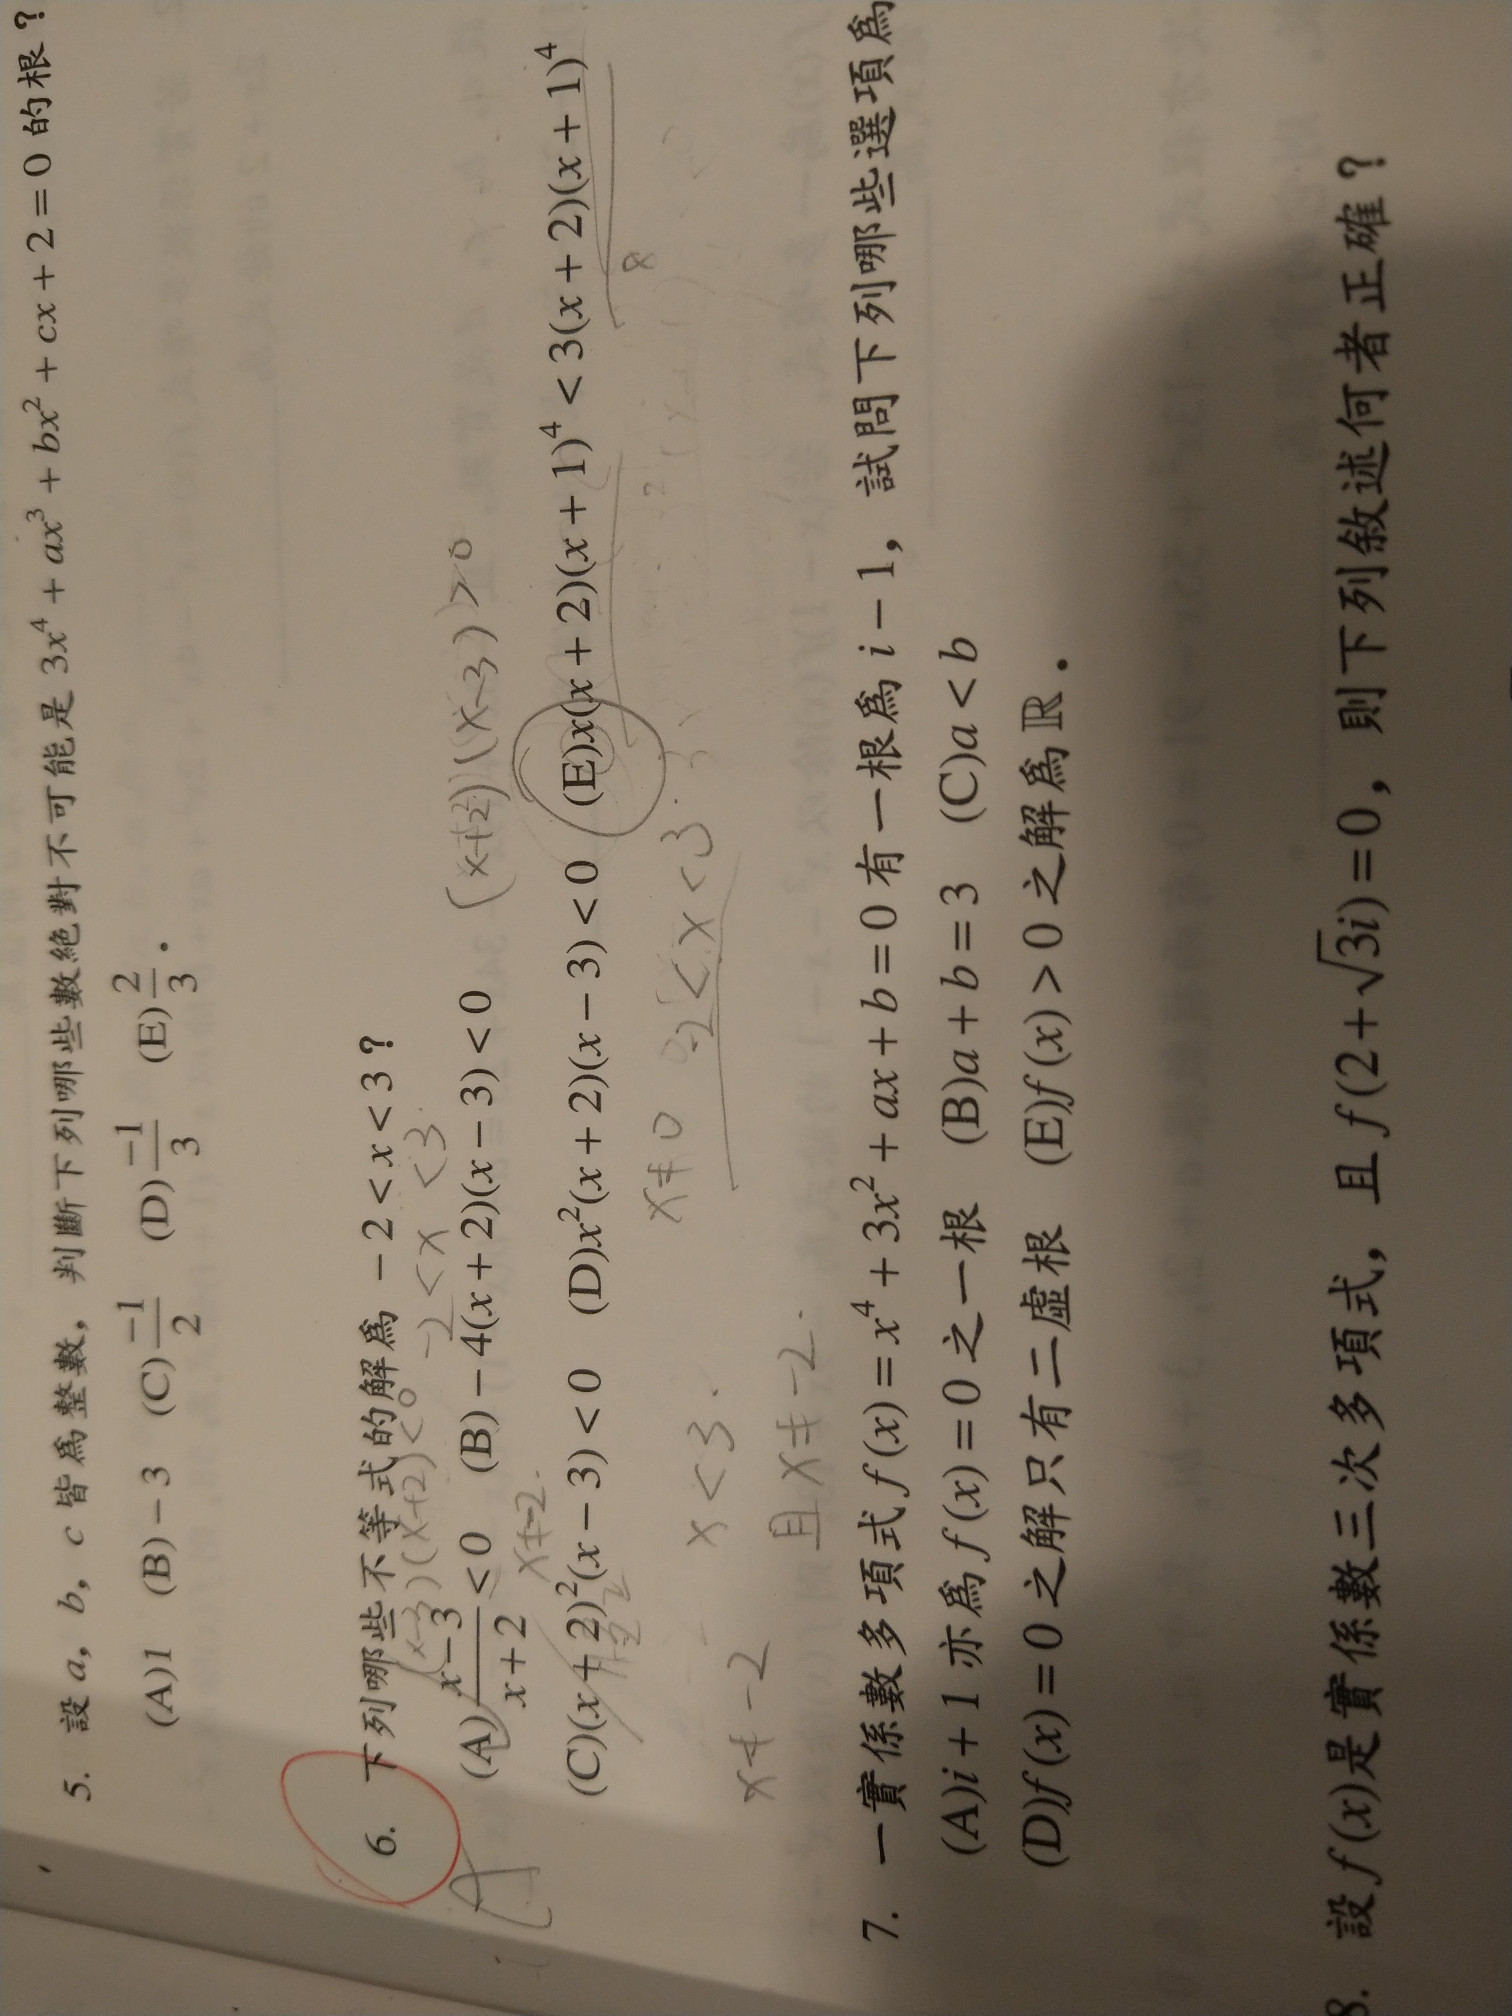 5. 設 a, b, c 皆為整數, 判斷下列哪些數絕對不可能是 3x⁴ + ax³ + bx² + cx + 2 = 0 的根?
(A)1 (B)-3 (C)-1/2 (D)-1/3 (E)2/3.
6. 下列哪些不等式的解為 -2 < x < 3?
(x-3)(x+2)<0 -2<x<3.
(A)x-3/x+2 < 0 (B)-4(x+2)(x-3) < 0 (x+2)(x-3)>0
x≠-2.
(C)(x+2)²(x-3) < 0 (D)x²(x+2)(x-3) < 0 (E)x(x+2)(x+1)⁴ < 3(x+2)(x+1)⁴
x≠0 -2<x<3
x<3.
x≠-2 且x≠-2.
7. 一實係數多項式 f(x) = x⁴ + 3x² + ax + b = 0 有一根為 i-1, 試問下列哪些選項為
(A)i+1 亦為 f(x) = 0 之一根 (B)a+b=3 (C)a<b
(D)f(x) = 0 之解只有二虛根 (E)f(x) > 0 之解為ℝ.
8. 設 f(x)是實係數三次多項式, 且 f(2+√3i)=0, 則下列敘述何者正確?